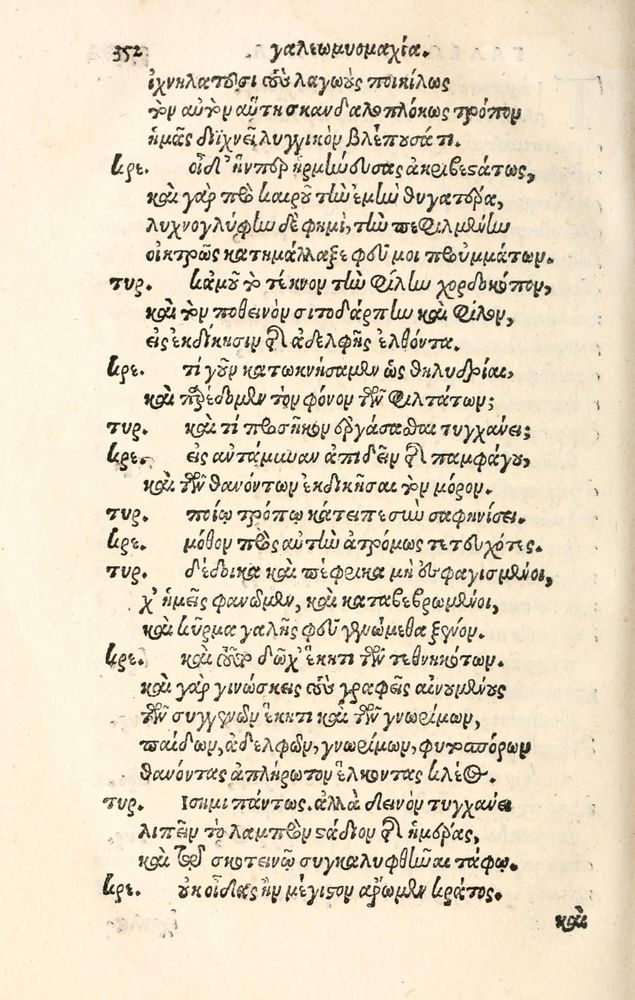 352 γαλεωμυομαχία.
ἰχνηλατοῦσι τοὺς λαγωοὺς ποικίλως
τὸν αὐτὸν αὕτη σκανδαλοπλόκως τρόπον
ἡμᾶς διϊχνεῖ λυγγικὸν βλέπουσά τι.
κρε. οἶδ' ἥνπερ ἡρμήνευσας ἀκριβεστάτως,
καὶ γὰρ πρὸ καιροῦ τὴν ἐμὴν θυγατέρα,
λυχνογλύφην δὲ φημὶ, τὴν πεφιλμένην
οἰκτρῶς κατημάλλαξε φεῦ μοι πρὸ ὀμμάτων.
τυρ. κἀμοῦ τὸ τέκνον τὴν φίλην χορδοκόπον,
καὶ τὸν ποθεινὸν σιτοδάρπην καὶ φίλον,
εἰς ἐκδίκησιν τῆς ἀδελφῆς ἐλθόντα.
κρε. τί γοῦν κατωκνήσαμεν ὡς θηλυδρίαι,
καὶ προέδομεν τὸν φόνον τῶν φιλτάτων;
τυρ. καὶ τί προσῆκον ἐργάσασθαι τυγχάνει;
κρε. εἰς ἀντάμυναν ἀπιδεῖν τῆς παμφάγου,
καὶ τῶν θανόντων ἐκδικῆσαι τὸν μόρον.
τυρ. ποίῳ τρόπῳ κάτειπε σὺν σαφηνίσει.
κρε. μόθον πρὸς αὐτὴν ἀτρόμως τετευχότες.
τυρ. δέδοικα καὶ πέφρικα μὴ οὐ σφαγισμένοι,
χ' ἡμεῖς φανῶμεν, καὶ καταβεβρωμένοι,
καὶ κῦρμα γαλῆς φεῦ γενώμεθα ξένον.
κρε. καὶ τοῦτο δῶχ' ἕκητι τῶν τεθνηκότων.
καὶ γὰρ γινώσκεις τοὺς γραφεῖς αἰνουμένους
τῶν συγγενῶν ἕκητι καὶ τῶν γνωρίμων,
παίδων, ἀδελφῶν, γνωρίμων, φυτοσπόρων
θανόντας ἀπλήρωτον ἕλκοντας κλέος.
τυρ. Ισημι πάντως. ἀλλὰ δεινὸν τυγχάνει
λιπεῖν τὸ λαμπρὸν στάδιον τῆς ἡμέρας,
καὶ τῷ σκοτεινῷ συγκαλυφθῆναι τάφῳ.
κρε. οὐκ οἶδας ἣν μέγιστον αἴρωμεν κράτος.
καὶ